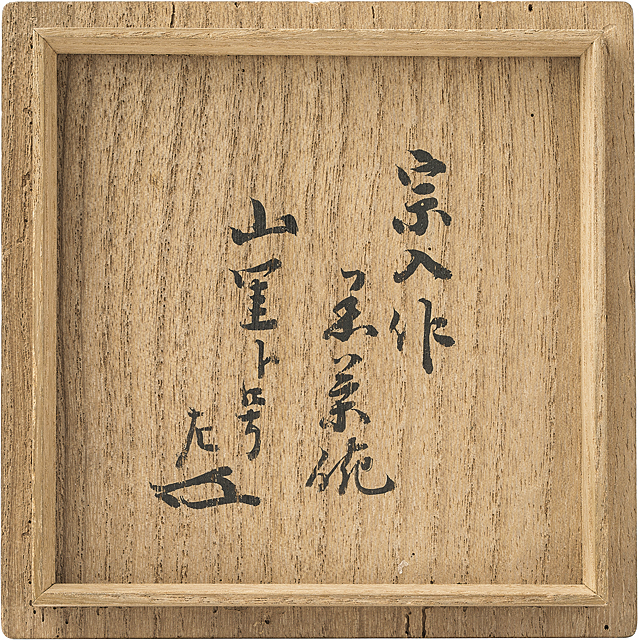 宗入作
黒茶碗
山里ト号
左